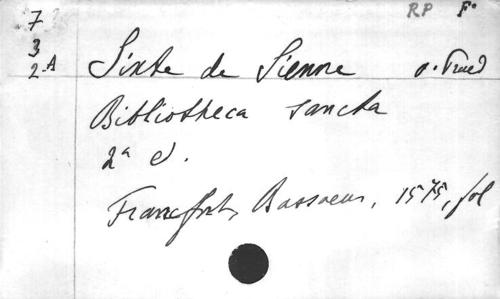 RP F°
7
3
2-A
Sixte de Sienne o. Praed
Bibliotheca sancta
2ª éd.
Francfort, Bassaeus, 1575, fol